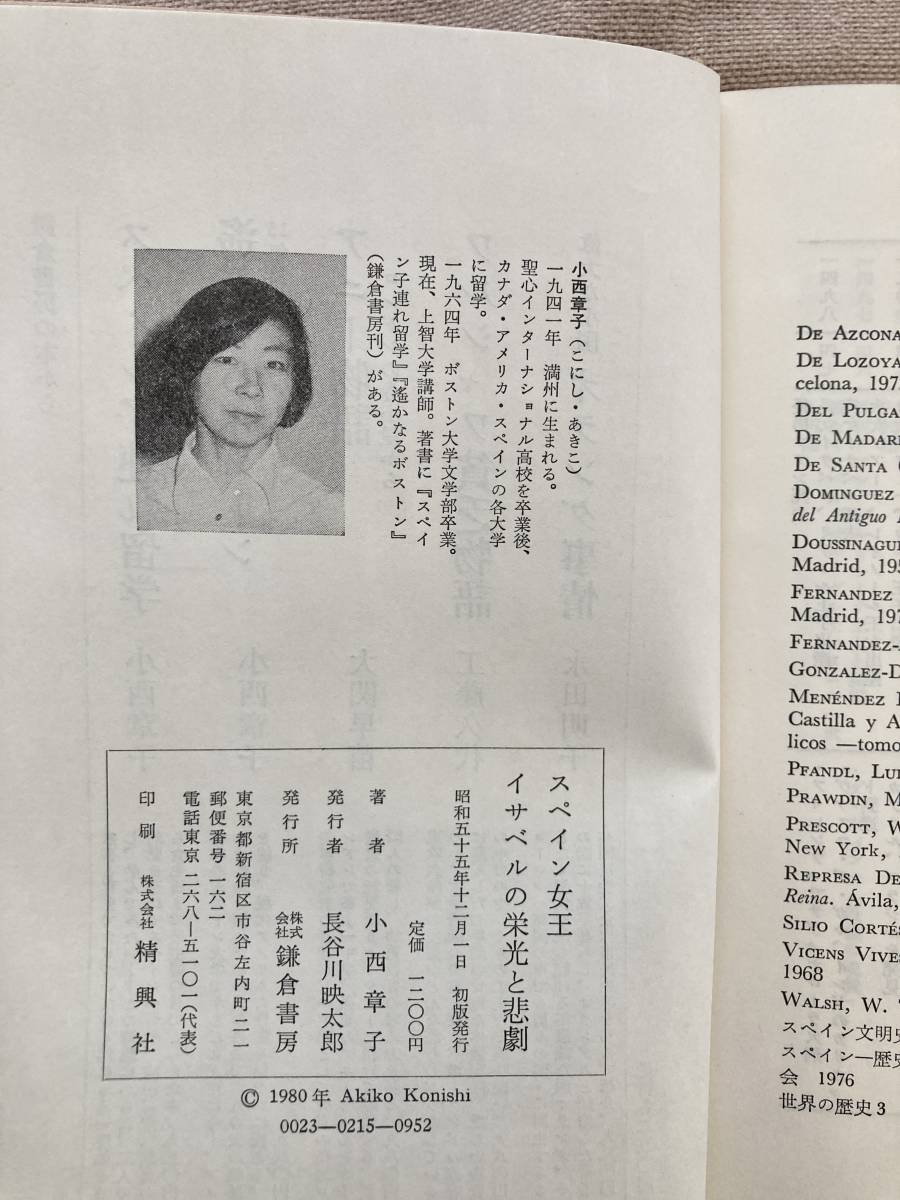 小西章子(こにし・あきこ)
一九四一年 満州に生まれる。
聖心インターナショナル高校を卒業後、
カナダ・アメリカ・スペインの各大学
に留学。
一九六四年 ボストン大学文学部卒業。
現在、上智大学講師。著書に『スペイ
ン子連れ留学』『遙かなるボストン』
(鎌倉書房刊)がある。
スペイン女王
イサベルの栄光と悲劇
昭和五十五年十二月一日 初版発行
定価 一二〇〇円
著者 小西章子
発行者 長谷川映太郎
発行所 株式会社 鎌倉書房
東京都新宿区市谷左内町二一
郵便番号 一六二
電話東京 二六八—五一〇一(代表)
印刷 株式会社 精興社
© 1980年 Akiko Konishi
0023—0215—0952
DE AZCONA
DE LOZOYA
celona, 197
DEL PULGA
DE MADARI
DE SANTA
DOMINGUEZ
del Antiguo
DOUSSINAGU
Madrid, 195
FERNANDEZ
Madrid, 197
FERNANDEZ-
GONZALEZ-D
MENÉNDEZ
Castilla y A
licos —tomo
PFANDL, LU
PRAWDIN, M
PRESCOTT, W
New York,
REPRESA DE
Reina. Ávila,
SILIO CORTÉS
VICENS VIVES
1968
WALSH, W.
スペイン文明史
スペイン—歴史
会 1976
世界の歴史3